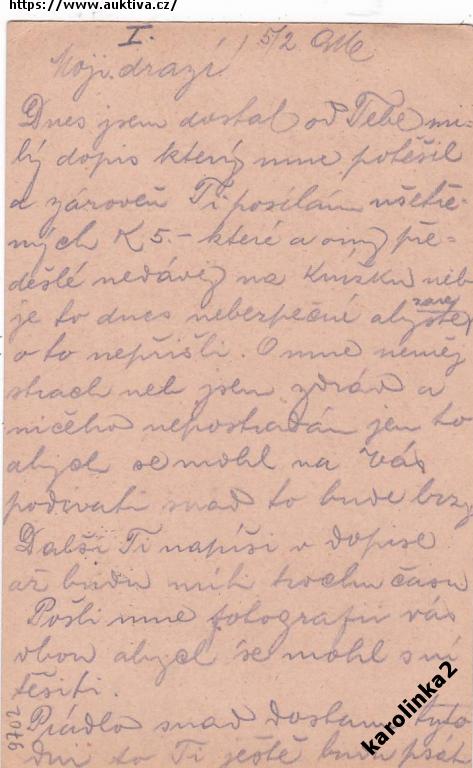 https://www.auktiva.cz/
I. 5/2
Moji drazí!
Dnes jsem dostal od Tebe mi-
lý dopis který mne potěšil
a zároveň Ti posílám ušetře-
ných K 5.– které a ony pře-
dešlé nedávej na knížku neb
je to dnes nebezpečné abyste
o to nepřišli. O mne neměj
strach neb jsem zdráv a
ničeho nepostrádám jen to
abych se mohl na Vás
podívati snad to bude brzy
Další Ti napíši v dopise
až budu míti trochu času
Pošli mne fotografii vás
obou abych se mohl s ní
těšiti.
Prádlo snad dostanu tyto
dni to Ti ještě budu psát
2076
karolinka2